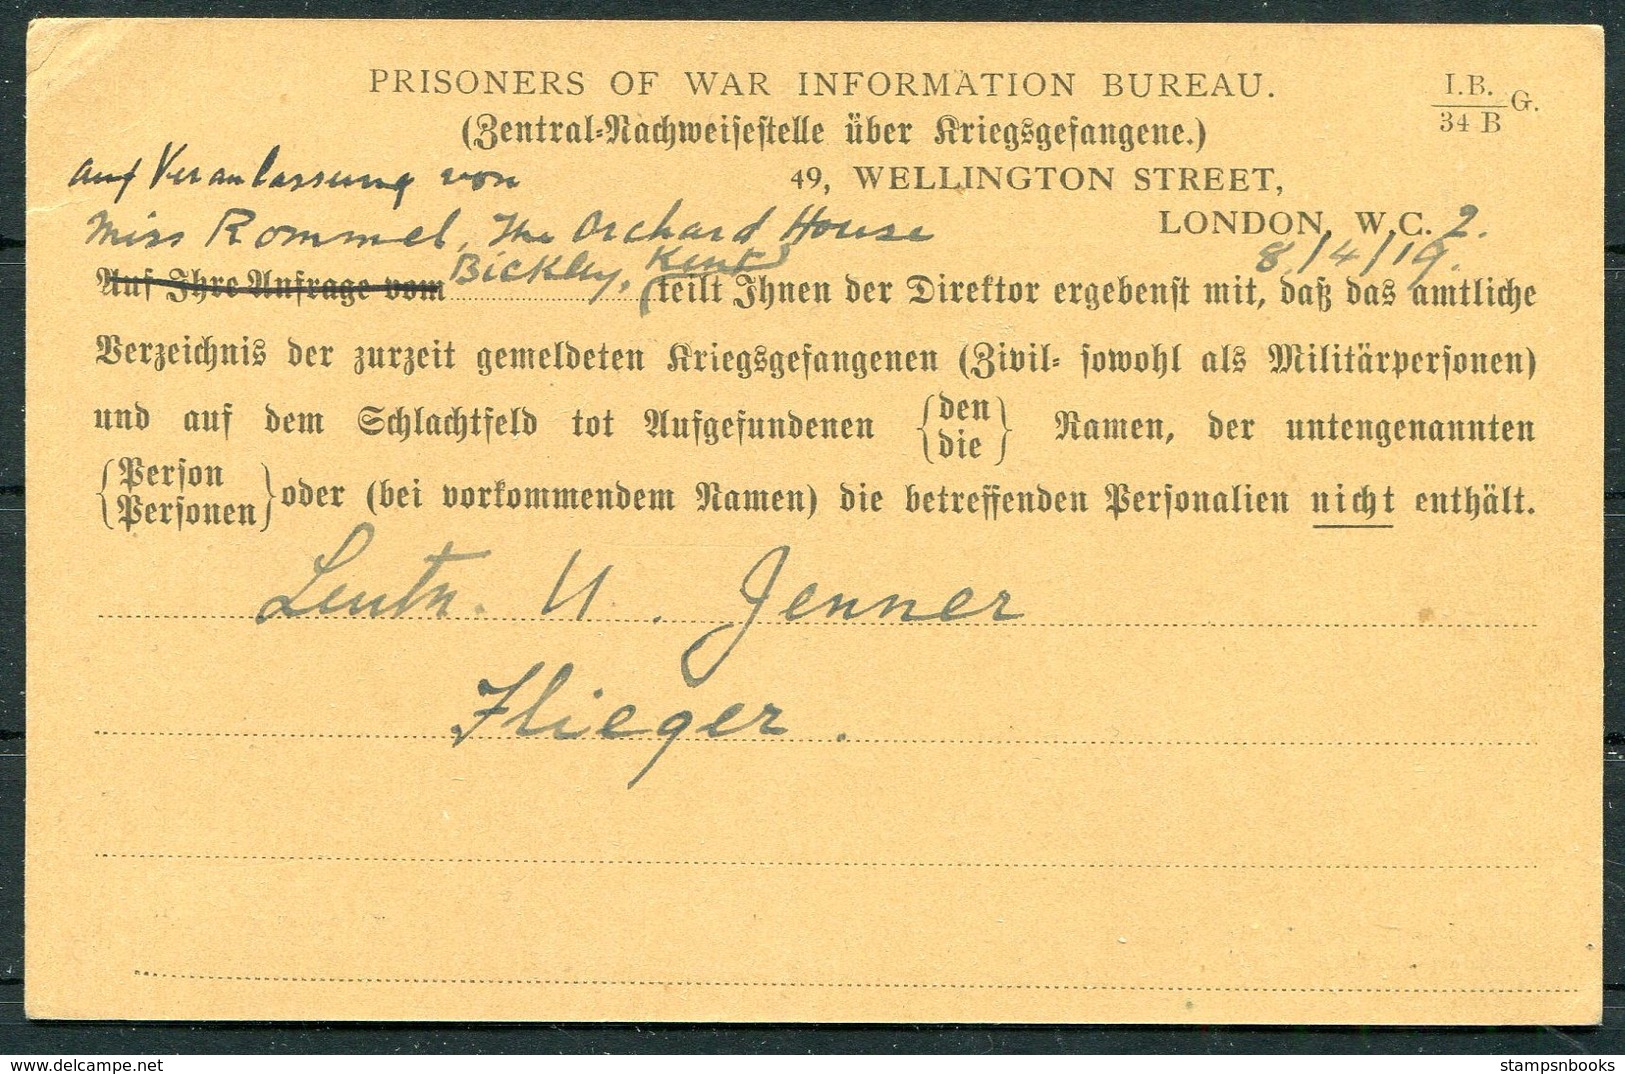 PRISONERS OF WAR INFORMATION BUREAU.
I.B.
34 B G.
(Zentral-Nachweisestelle über Kriegsgefangene.)
auf Veranlassung von
49, WELLINGTON STREET,
Miss Rommel, The Orchard House
LONDON, W.C. 2.
Bickley, Kent
8/4/19.
Auf Ihre Anfrage vom (teilt Ihnen der Direktor ergebenst mit, daß das amtliche
Verzeichnis der zurzeit gemeldeten Kriegsgefangenen (Zivil- sowohl als Militärpersonen)
und auf dem Schlachtfeld tot Aufgefundenen {den / die} Namen, der untengenannten
{Person / Personen} oder (bei vorkommendem Namen) die betreffenden Personalien nicht enthält.
Leutn. U. Jenner
Flieger.
stampsnbooks